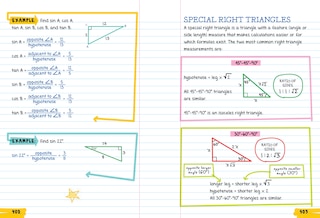 EXAMPLE Find sin A, cos A,
tan A, sin B, cos B, and tan B.
sin A = opposite ∠A / hypotenuse
cos A = adjacent to ∠A / hypotenuse
tan A = opposite ∠A / adjacent to ∠A
sin B = opposite ∠B / hypotenuse
cos B = adjacent to ∠B / hypotenuse
tan B = opposite ∠B / adjacent to ∠B
EXAMPLE Find sin 22°.
sin 22° = opposite / hypotenuse
SPECIAL RIGHT TRIANGLES
A special right triangle is a triangle with a feature (angle or
side length) measure that makes calculations easier or for
which formulas exist. The two most common right triangle
measurements are:
45°-45°-90°
hypotenuse = leg × √2
All 45°-45°-90° triangles
are similar.
45°
45°
RATIO OF
SIDES:
1 : 1 : √2
45°-45°-90° is an isosceles right triangle.
30°-60°-90°
60°
30°
RATIO OF
SIDES:
1 : 2 : √3
opposite longer
angle (60°)
opposite smaller
angle (30°)
longer leg = shorter leg × √3
hypotenuse = shorter leg × 2
All 30°-60°-90° triangles are similar.